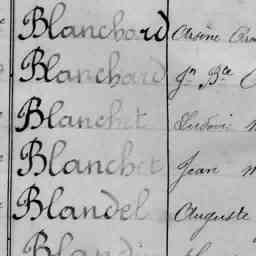 Blanchard Arsène
Blanchard Jn Bte
Blanchet Ludovic
Blanchet Jean
Blandel Auguste